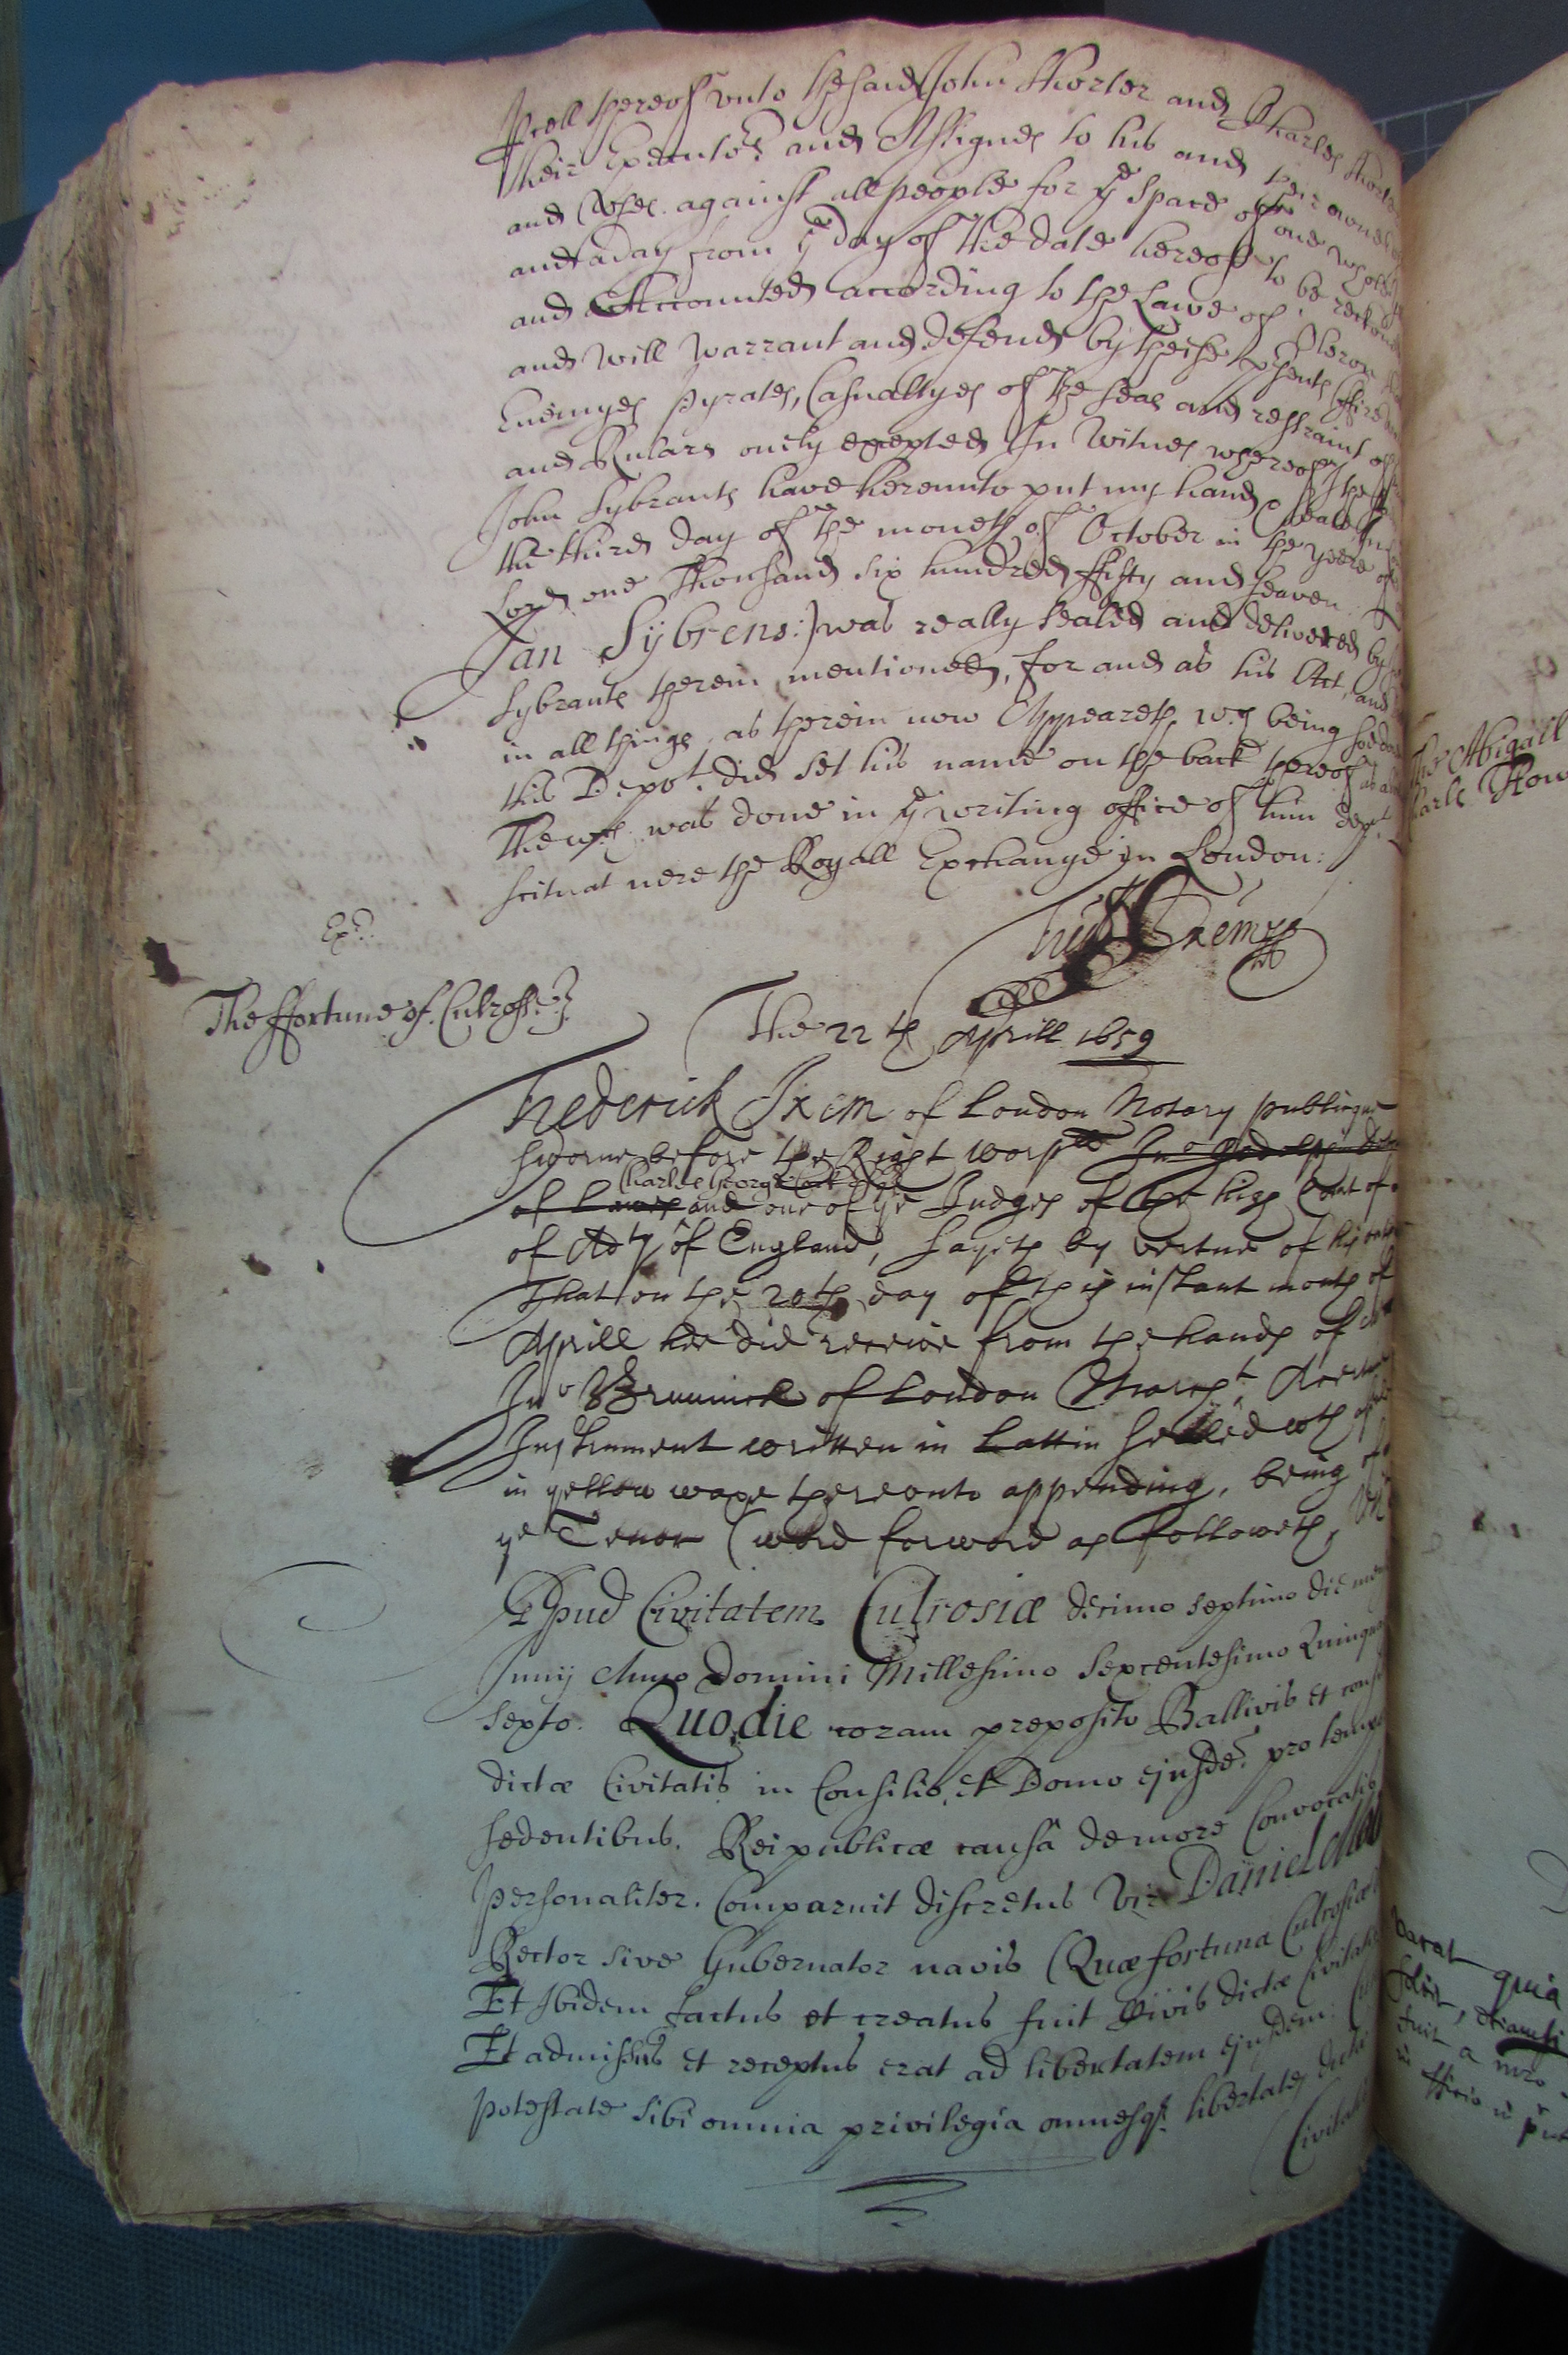 sell thereof unto the said John Shorter and Charles Shorter
their Executo:rs and Assignes to his and their owne
and Uses against all people for ye space of one whole
and a day from ye day of the date hereof to be reckoned
and Accounted according to the Lawe of Oleron
and will warrant and defend by these presents
Enemyes Pyrates, Casualtyes of the Seas and restraint of
and Rulars onely excepted In Witnes whereof I the sd
John Sybrants have hereunto put my hand & seale
the third day of the moneth of October in the yeere of
Lord one Thousand six hundred ffifty and seaven
Jan Sijbrens:) was really sealed and delivered by
Sybrants therein mentioned, for and as his Act, and
in all things as therein now Appeareth, wch being soe
this Depot. did set his name on the back thereof as
The wch was done in ye writing office of him dept.
scituat nere the Royall Exchange in London:
fred: Ixem
Exd.
The ffortune of Culrosse.}
The 22th Aprill 1659
frederick Ixem of London Notary publique
sworne before the Right worpll Jno Godolphin
of Lawes and one of ye Judges of the high Court of
Charles George Cock
of Adty of England, sayeth by vertue of his oath
That on the 20th day of this instant month of
Aprill hee did receive from the hands of
Jno Brunnick of London Marcht,
Instrument written in Lattin sealed wth
in yellow waxe thereonto appending, being of
ye Tenor (word forword as followeth,
Apud Civitatem Culrosiæ decimo septimo die
Junij Anno Domini Millesimo Sexcentesimo
Septo. Quo die coram preposito Ballivis et
dictæ Civitatis in Consilio, et Domo ejusde. pro tempore
sedentibus. Reipublicæ causâ de more Convocatis
Personaliter. Comparuit discretus Vir Daniel
Rector sive Gubernator navis (Quæ fortuna Culrosiæ
Et Ibidem factus et creatus fuit Civis dictæ Civitatis
Et admissus et receptus erat ad libertatem ejusdem:
potestate sibi omnia privilegia omnesqe. libertates dictæ
Civitatis
The Abigall
quia
fuit a